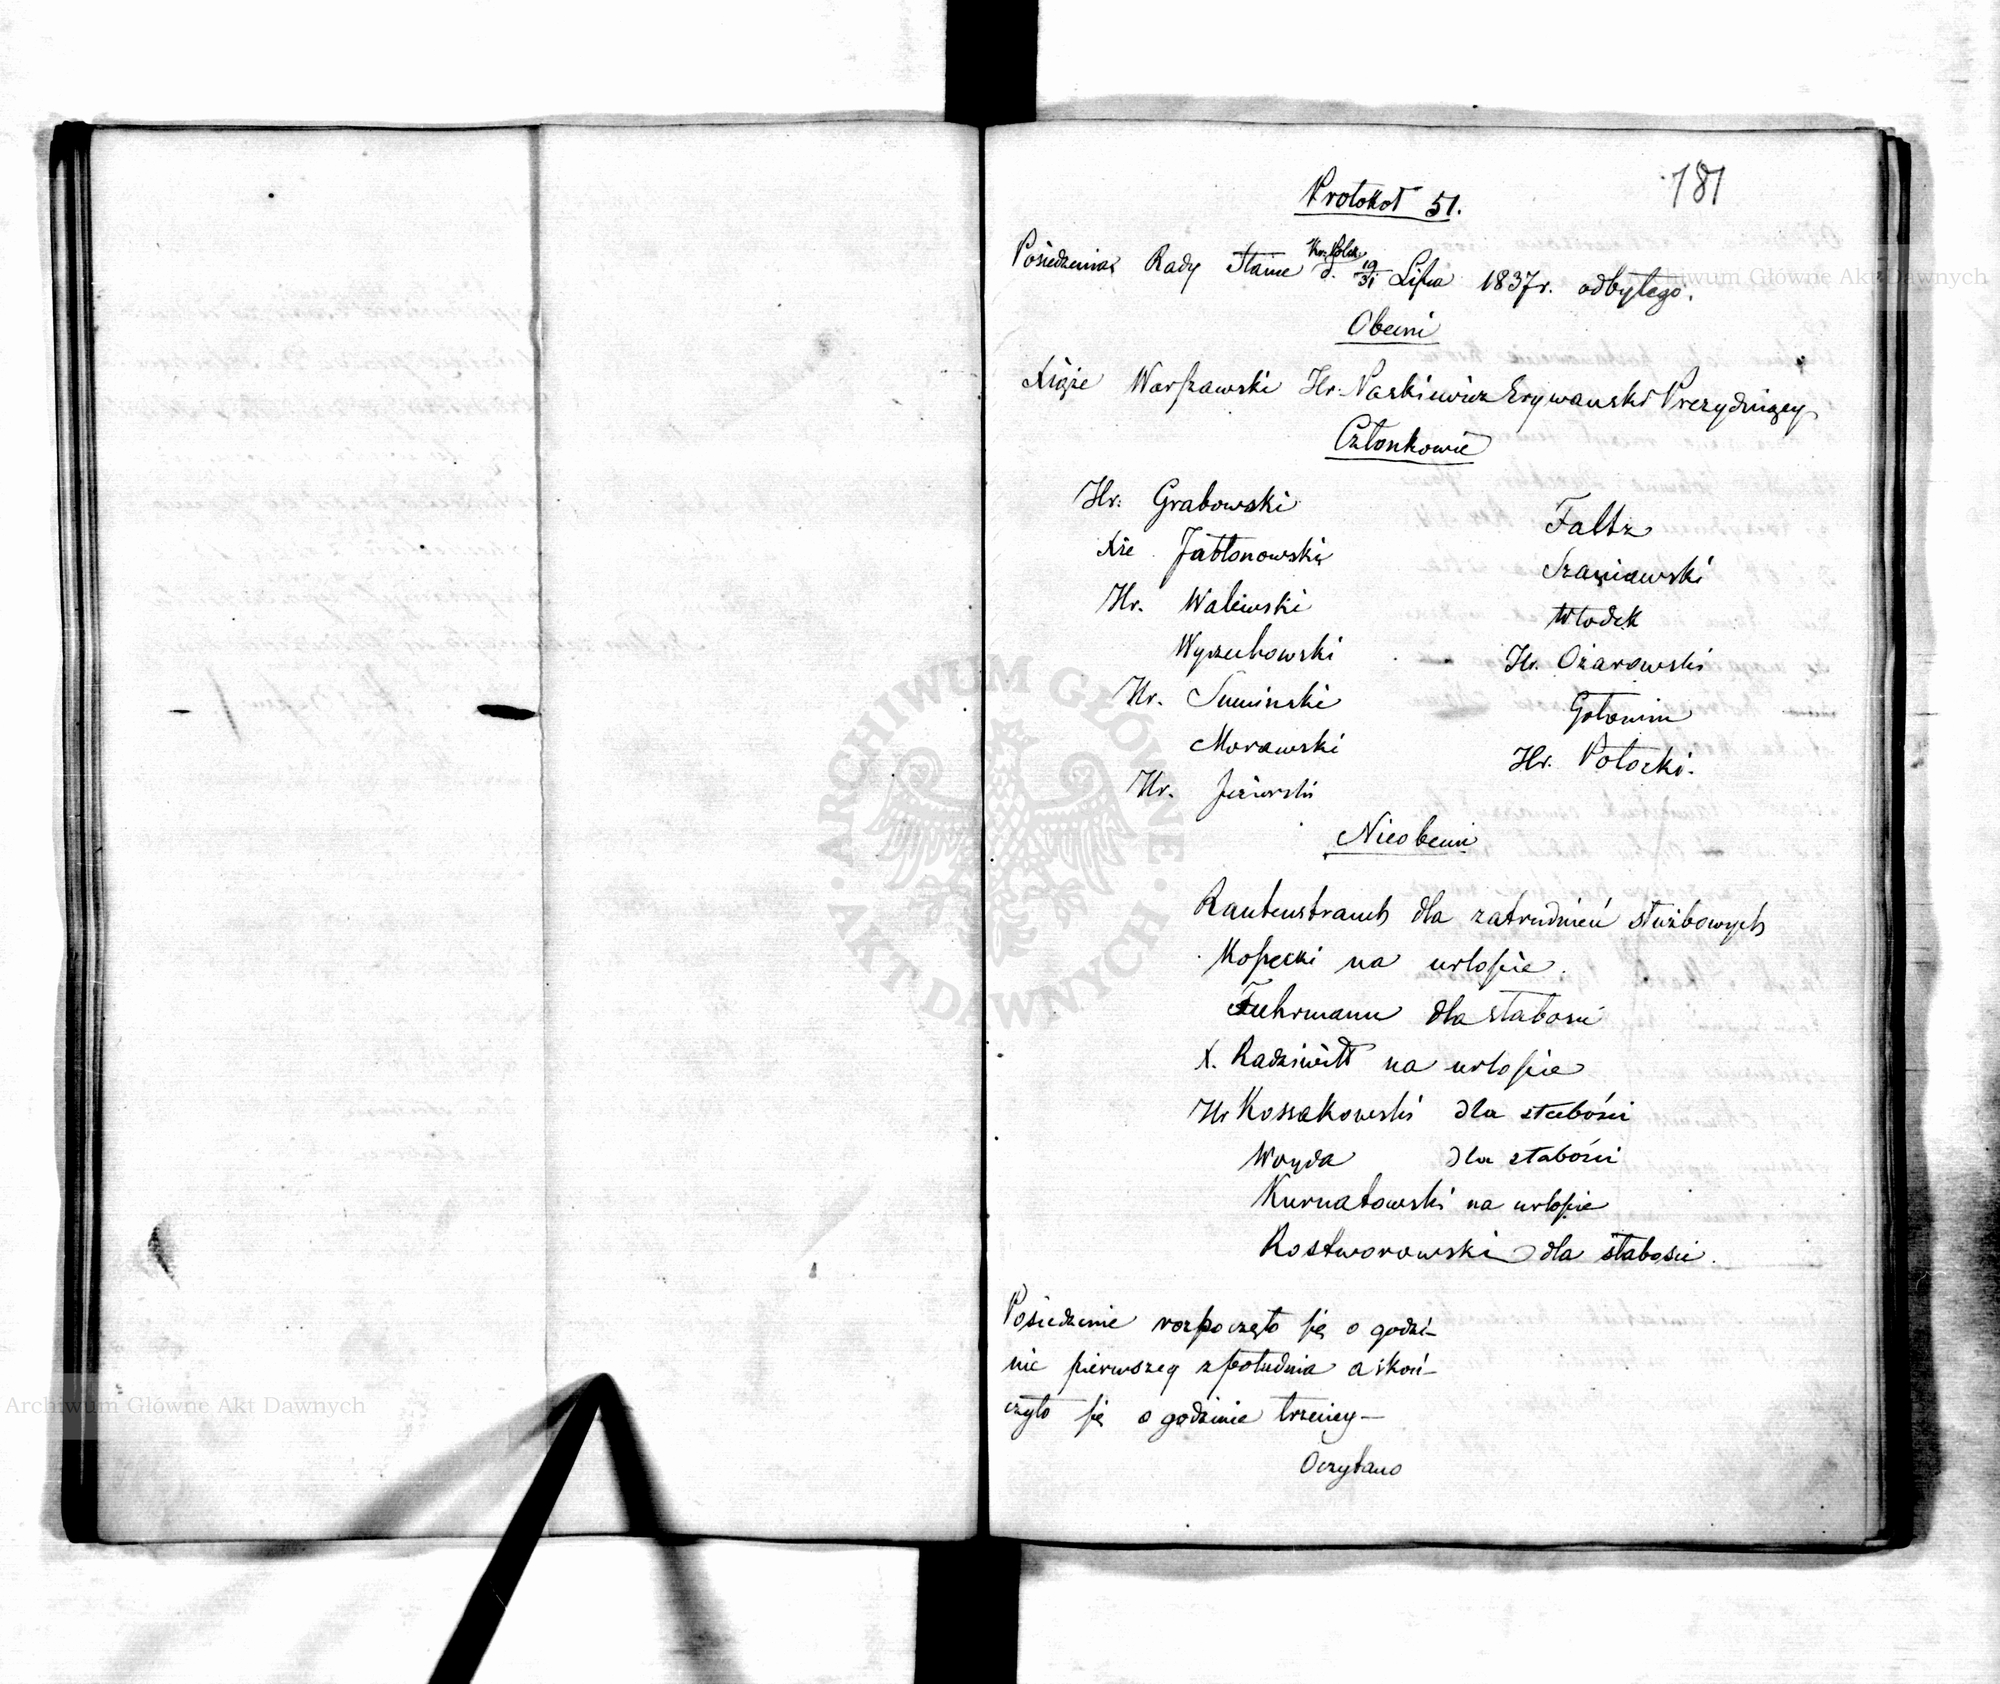 181
Protokół 51.
Posiedzenia Rady Stanu Kr: Polsk. d. 19/31 Lipca 1837 r. odbytego.
Obecni
Xiąże Warszawski Hr. Paskiewicz Erywański Prezydujący
Członkowie
Hr: Grabowski
Xże Jabłonowski
Hr. Walewski
Wyczechowski
Hr. Sumiński
Morawski
Hr. Jezierski
Faltz
Szaniawski
Włodek
Hr. Ożarowski
Gołowin
Hr. Potocki.
Nieobecni
Rautenstrauch dla zatrudnień służbowych
Kossecki na urlopie
Fuhrmann dla słabości
X. Radziwiłł na urlopie
Hr Kossakowski dla słabości
Woyda dla słabości
Kurnatowski na urlopie
Rostworowski dla słabości.
Posiedzenie rozpoczęło się o godzi-
nie pierwszey z południa a skoń-
czyło się o godzinie trzeciey —
Oczytano
ARCHIWUM GŁÓWNE AKT DAWNYCH
Archiwum Główne Akt Dawnych
Archiwum Główne Akt Dawnych